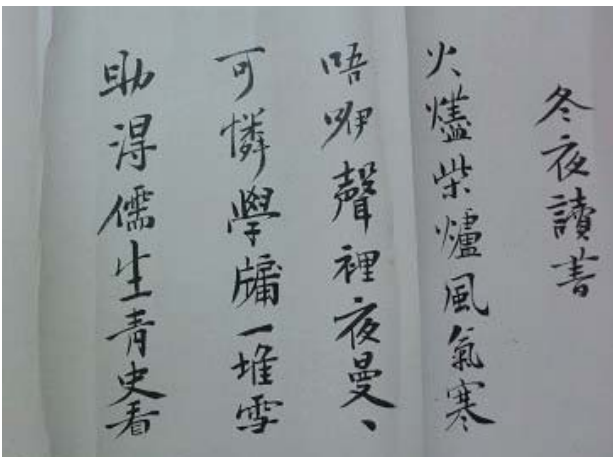 冬夜讀書
火爐柴爐風氣寒
唔咿聲裡夜曼、
可憐學牖一堆雪
助得儒生青史看